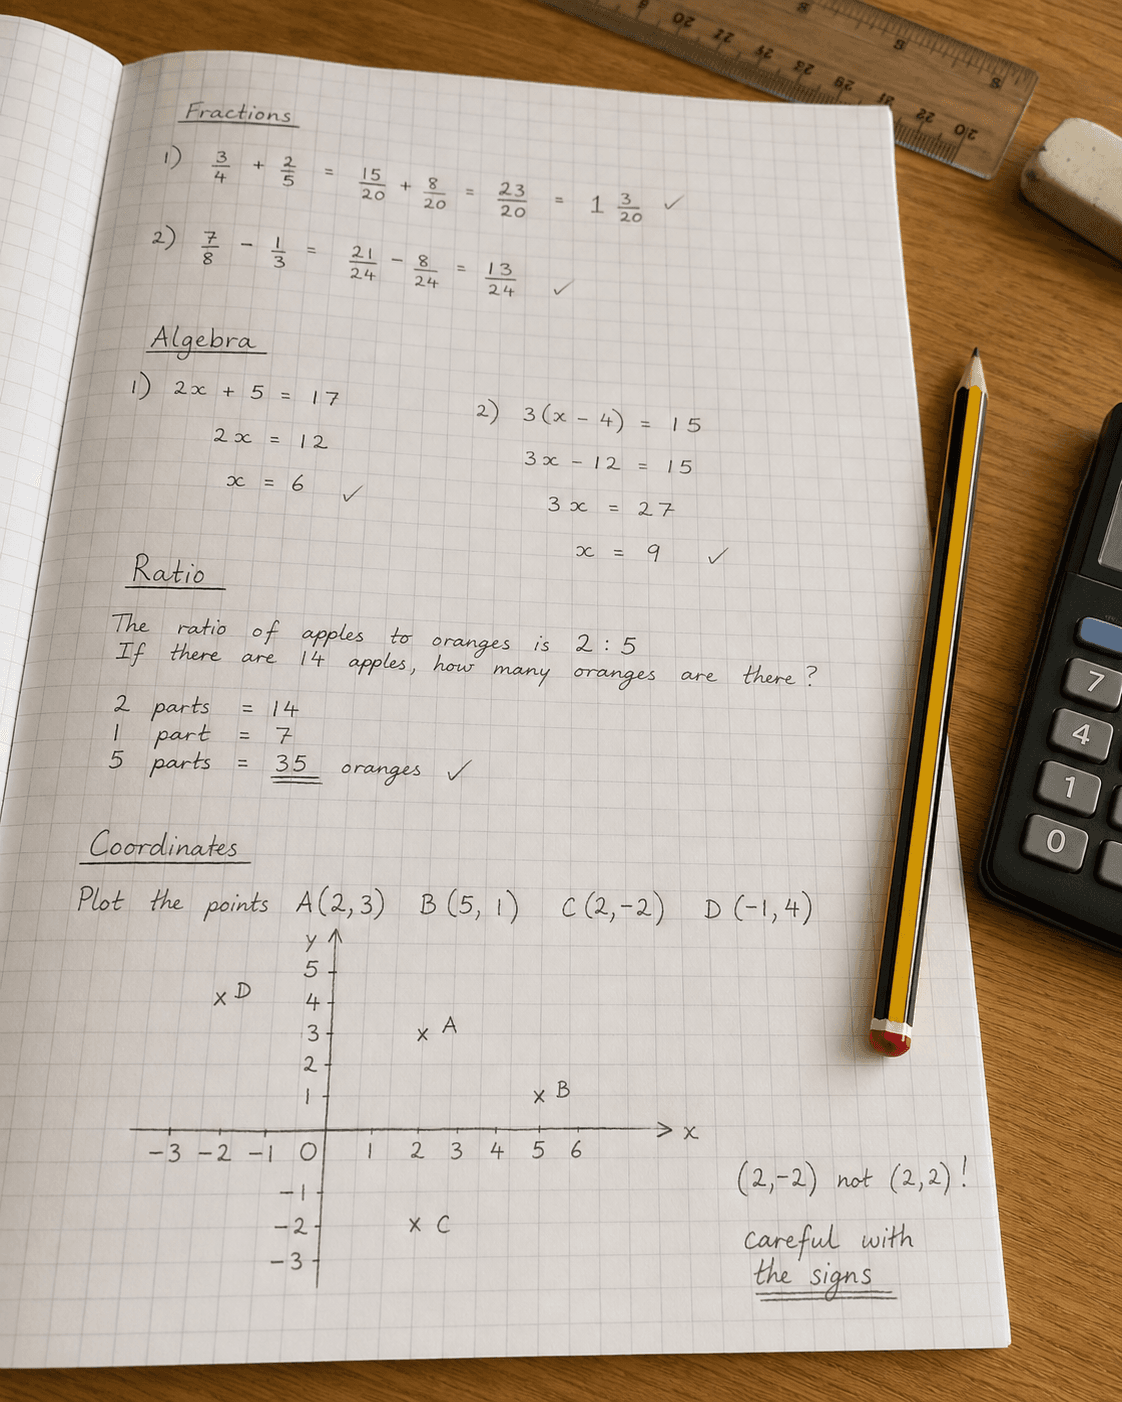 Fractions
1) 3/4 + 2/5 = 15/20 + 8/20 = 23/20 = 1 3/20 ✓
2) 7/8 - 1/3 = 21/24 - 8/24 = 13/24 ✓
Algebra
1) 2x + 5 = 17
2x = 12
x = 6 ✓
2) 3(x - 4) = 15
3x - 12 = 15
3x = 27
x = 9 ✓
Ratio
The ratio of apples to oranges is 2 : 5
If there are 14 apples, how many oranges are there?
2 parts = 14
1 part = 7
5 parts = 35 oranges ✓
Coordinates
Plot the points A(2,3) B(5, 1) C(2,-2) D(-1,4)
y
5
x D
4
x A
3
2
x B
1
x
-3 -2 -1 0 1 2 3 4 5 6
-1
-2
x C
-3
(2,-2) not (2,2)!
careful with
the signs
7
4
1
0